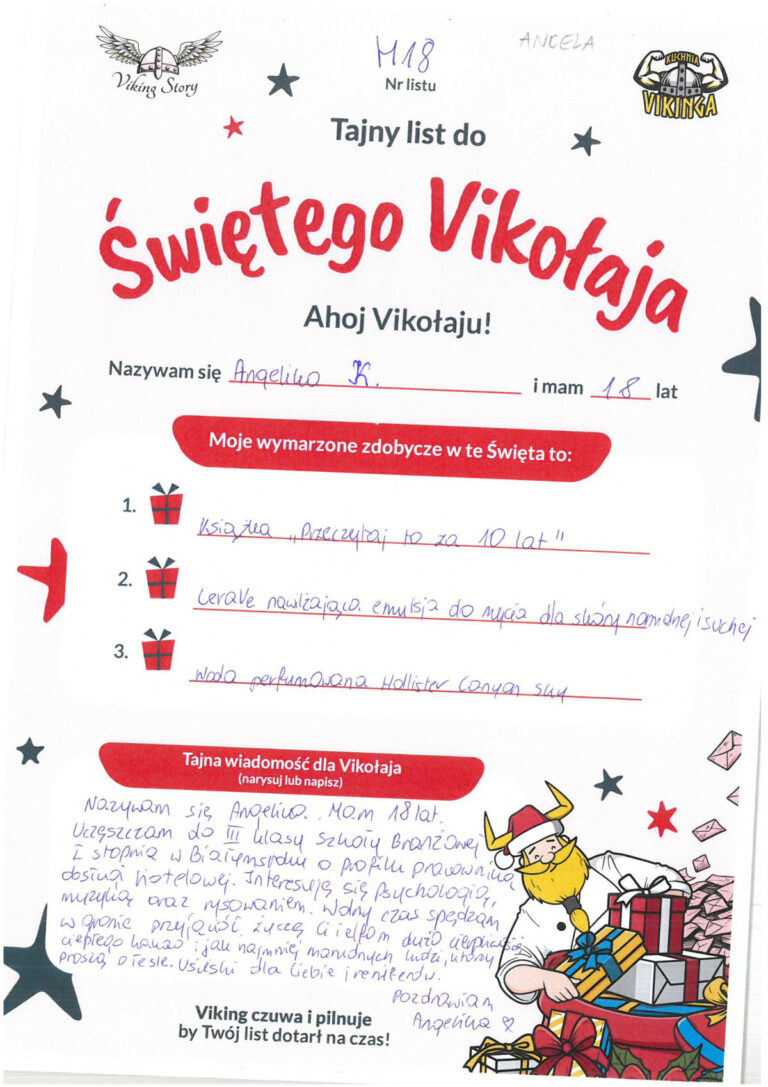 Viking Story
H18
Nr listu
ANGELA
KUCHNIA
VIKINGA
Tajny list do
Świętego Vikołaja
Ahoj Vikołaju!
Nazywam się Angelika K. i mam 18 lat
Moje wymarzone zdobycze w te Święta to:
1. Książka "Przeczytaj to za 10 lat"
2. CeraVe nawilżająca emulsja do mycia dla skóry normalnej i suchej
3. Woda perfumowana Hollister Canyon sky
Tajna wiadomość dla Vikołaja
(narysuj lub napisz)
Nazywam się Angelika. Mam 18 lat.
Uczęszczam do III klasy Szkoły Branżowej
I stopnia w Białymstoku o profilu pracownika
obsługi hotelowej. Interesuję się psychologią,
muzyką oraz rysowaniem. Wolny czas spędzam
w gronie przyjaciół. Życzę Ci i elfom dużo cierpliwości,
ciepłego kakao i jak najmniej marudnych ludzi, którzy
proszą o Tesle. Uściski dla Ciebie i reniferów.
Pozdrawiam
Angelika
Viking czuwa i pilnuje
by Twój list dotarł na czas!